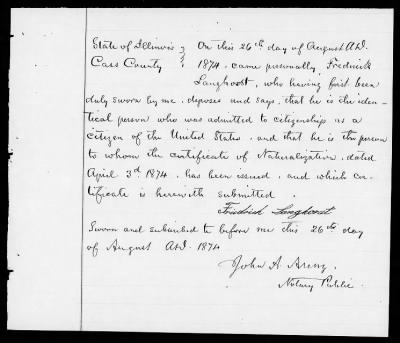 State of Illinois } On this 26th day of August A.D.
Cass County } 1874. came personally, Fredrick
Langhoost, who having first been
duly sworn by me, deposes and says, that he is the iden-
tical person who was admitted to citizenship as a
citizen of the United States. and that he is the person
to whom the certificate of Naturalization, dated
April 3d 1874. has been issued, and which cer-
tificate is herewith submitted.
Friedrich Langhorst
Sworn and subscribed to before me this 26th day
of August A.D. 1874
John A. Arenz
Notary Public.